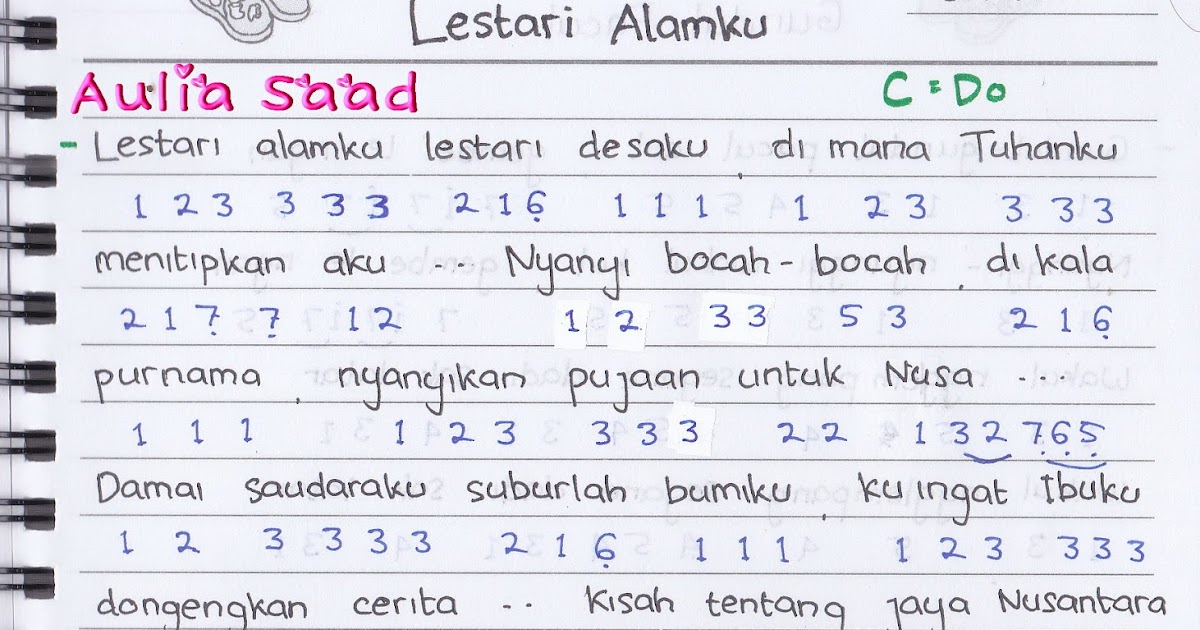 Lestari Alamku
Aulia Saad C = Do
- Lestari alamku lestari desaku, di mana Tuhanku
1 2 3 3 3 3 2 1 6̣ 1 1 1 1 2 3 3 3 3
menitipkan aku ... Nyanyi bocah - bocah, di kala
2 1 7̣ 7̣ 1 2 1 2 3 3 5 3 2 1 6̣
purnama, nyanyikan pujaan untuk Nusa ....
1 1 1 1 2 3 3 3 3 2 2 1 3 2 7̣ 6̣ 5̣
Damai saudaraku suburlah bumiku, ku ingat Ibuku
1 2 3 3 3 3 2 1 6̣ 1 1 1 1 2 3 3 3 3
dongengkan cerita .. Kisah tentang jaya Nusantara